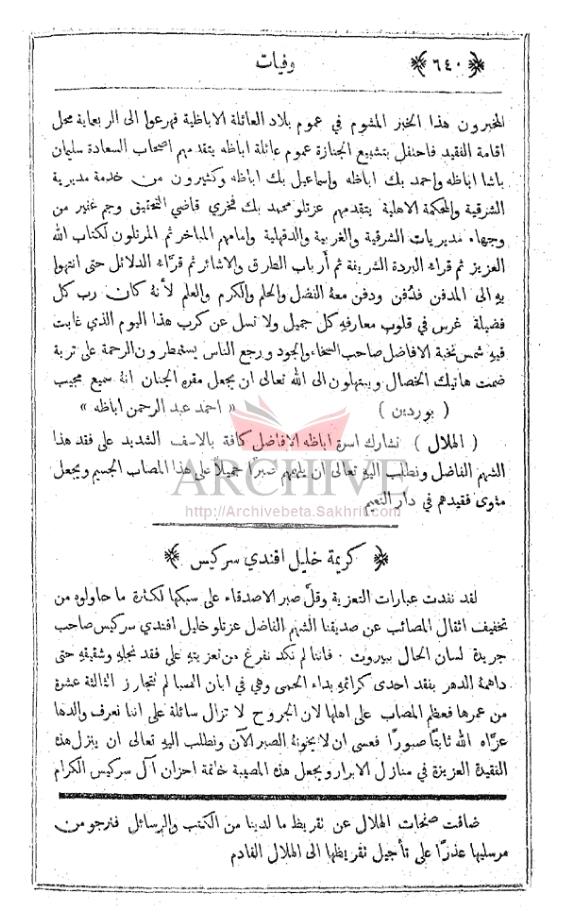 ﴿٦٤٠﴾ وفيات
المخبرون هذا الخبز المشوم في عموم بلاد العائلة الاباظية فهرعوا الى الربعاية محل
اقامة الفقيد فاحتفل بتشييع الجنازة عموم عائلة اباظه يتقدمهم اصحاب السعادة سليمان
باشا اباظه واحمد بك اباظه واسماعيل بك اباظه وكثيرون من خدمة مديرية
الشرقية والمحكمة الاهلية يتقدمهم عزتلو محمد بك فخري قاضي التحقيق وجم غفير من
وجهاء مديريات الشرقية والغربية والدقهلية وامامهم المباخر ثم المرتلون لكتاب الله
العزيز ثم قراء البردة الشريفة ثم أرباب الطارق والاشائر ثم قرّاء الدلائل حتى انتهوا
به الى المدفن فدُفن ودفن معهُ الفضل والحلم والكرم والعلم لأنهُ كان رب كل
فضيلة غرس في قلوب معارفهِ كل جميل ولا تسل عن كرب هذا اليوم الذي غابت
فيهِ شمس نخبة الافاضل صاحب السخاء والجود ورجع الناس يستمطرون الرحمة على تربة
ضمت هاتيك الخصال ويبتهلون الى الله تعالى ان يجعل مقره الجنان انهُ سميع مجيب
( بوردين ) « احمد عبد الرحمن اباظه »
( الهلال ) نشارك اسرة اباظه الافاضل كافة بالاسف الشديد على فقد هذا
الشهم الفاضل ونطلب اليهِ تعالى ان يلهمهم صبرًا جميلاً على هذا المصاب الجسيم ويجعل
مثوى فقيدهم في دار النعيم
ARCHIVE
http://Archivebeta.Sakhrit.com
﴿ كريمة خليل افندي سركيس ﴾
لقد نفدت عبارات التعزية وقلَّ صبر الاصدقاء على سبكها لكثرة ما حاولوه من
تخفيف اثقال المصائب عن صديقنا الشهم الفاضل عزتلو خليل افندي سركيس صاحب
جريدة لسان الحال ببيروت . فاننا لم نكد نفرغ من تعزيتهِ على فقد نجلهِ وشقيقه حتى
داهمهُ الدهر بفقد احدى كرائمهِ بداء الحمى وهي في ابان الصبا لم تتجاوز الثالثة عشرة
من عمرها فعظم المصاب على اهلها لان الجروح لا تزال سائلة على اننا نعرف والدها
عزّاه الله ثابتًا صبورًا فعسى ان لا يخونهُ الصبر الآن ونطلب اليهِ تعالى ان ينزل هذه
الفقيدة العزيزة في منازل الابرار ويجعل هذه المصيبة خاتمة احزان آل سركيس الكرام
ضاقت صفحات الهلال عن تقريظ ما لدينا من الكتب والرسائل فنرجو من
مرسليها عذرًا على تأجيل تقريظها الى الهلال القادم